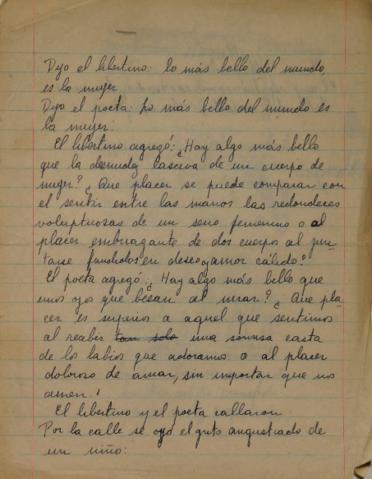 Dijo el libertino: lo más bello del mundo,
es la mujer
Dijo el poeta: Lo más bello del mundo es
la mujer:
El libertino agregó: ¿Hay algo más bello
que la desnudez lasciva de un cuerpo de
mujer? ¿Que placer se puede comparar con
el sentir entre las manos las redondeces
voluptuosas de un seno femenino o al
placer embriagante de dos cuerpos al jun-
tarse fundidos en deseo y amor cálido?
El poeta agregó: ¿Hay algo más bello que
unos ojos que besan al mirar? ¿Que pla-
cer es superior a aquel que sentimos
al recibir tan solo una sonrisa casta
de los labios que adoramos o al placer
doloroso de amar, sin importar que nos
amen?
El libertino y el poeta callaron
Por la calle se oyó el grito angustiado de
un niño: